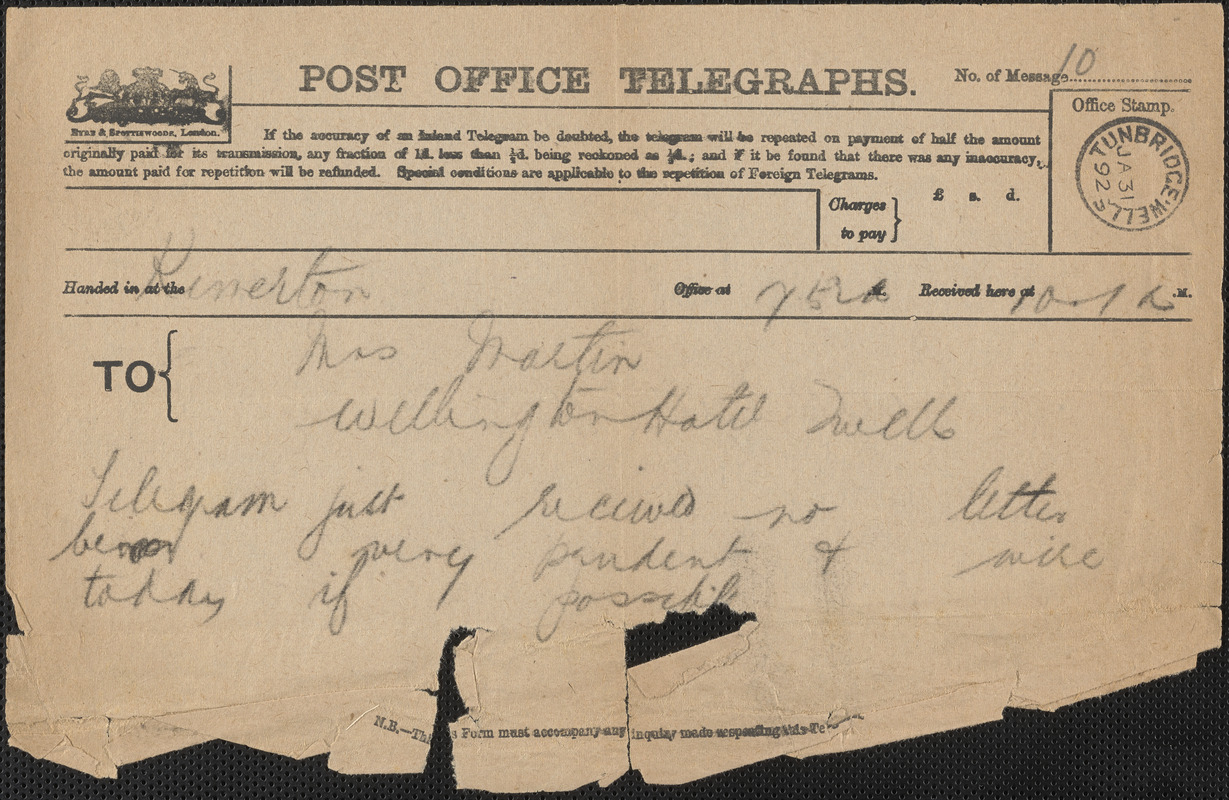 POST OFFICE TELEGRAPHS.
No. of Message 10
EYRE & SPOTTISWOODE, London.
Office Stamp.
TUNBRIDGE WELLS
JA 31
92
If the accuracy of an Inland Telegram be doubted, the telegram will be repeated on payment of half the amount
originally paid for its transmission, any fraction of 1d. less than ½d. being reckoned as ½d.; and if it be found that there was any inaccuracy,
the amount paid for repetition will be refunded. Special conditions are applicable to the repetition of Foreign Telegrams.
Charges to pay } £ s. d.
Handed in at the Office at .M. Received here at .M.
TO { Mrs Martin
Wellington Hotel Twells
Telegram just received no letter
very prudent & wire
today if possible
N.B.—This Form must accompany any inquiry made respecting this Te